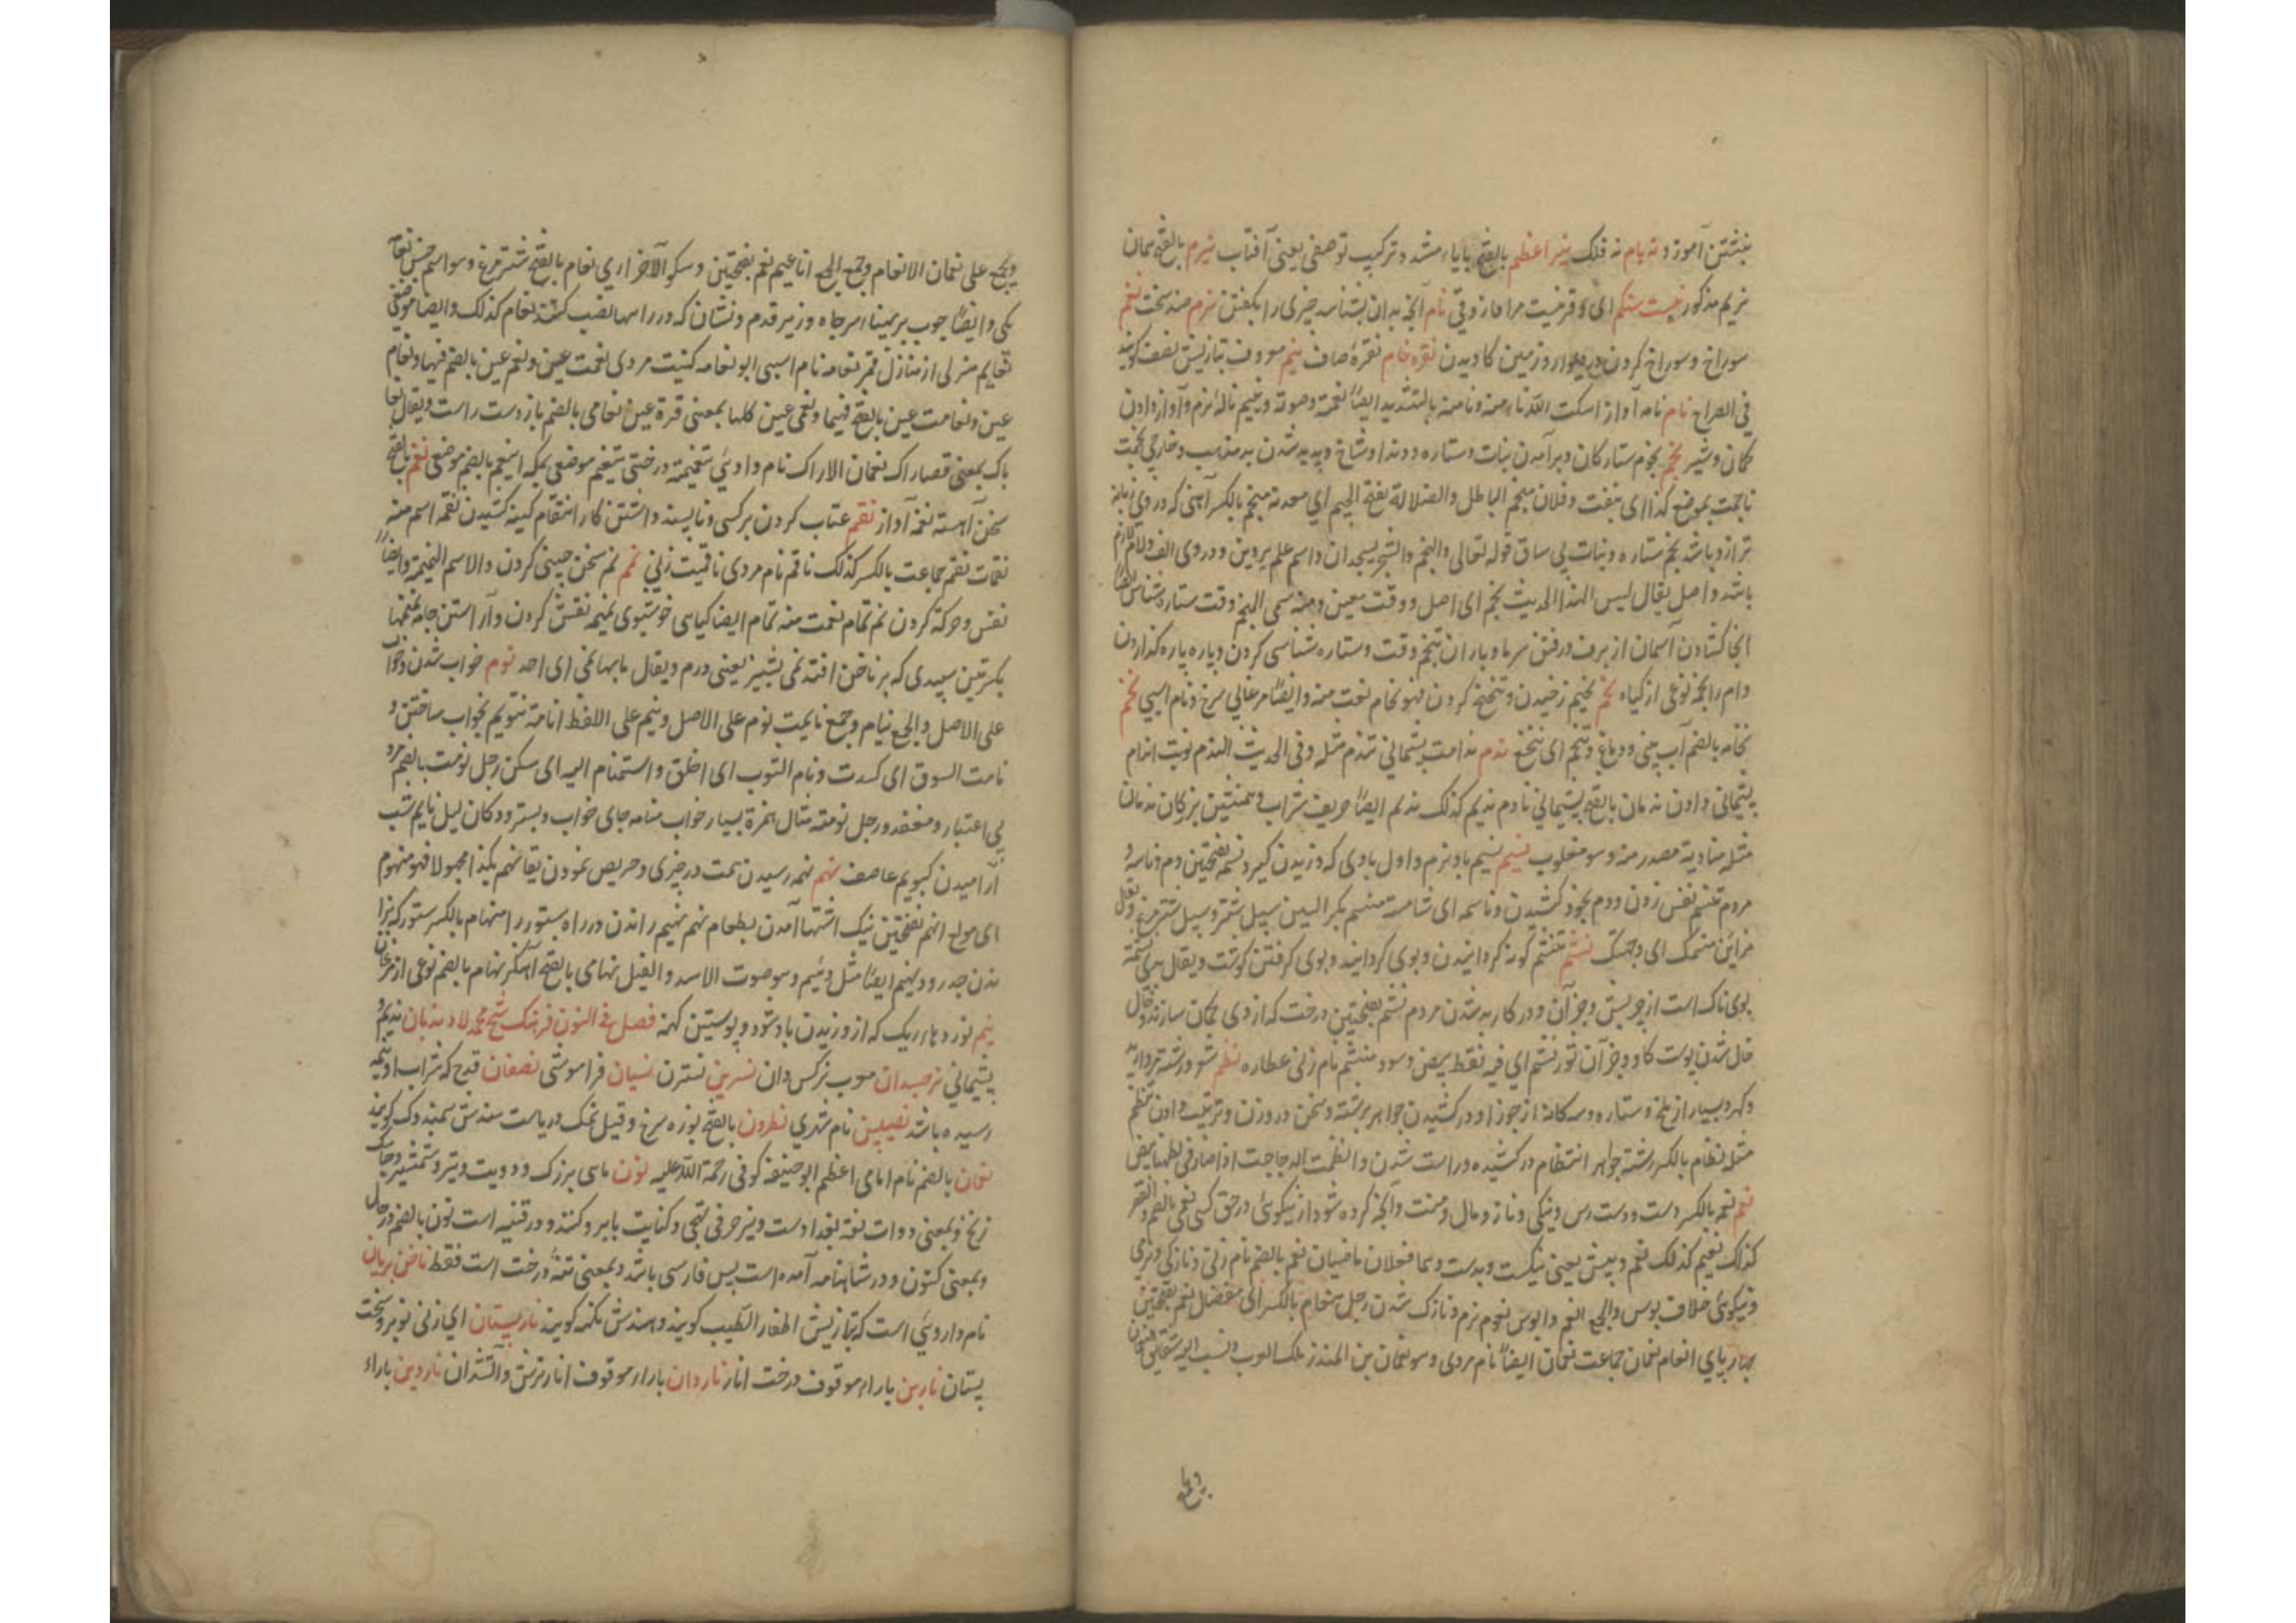 نبشتن آموزد نه بام نه فلک نیر اعظم بالفتح بایاء مشدد ترکیب توصیفی یعنی آفتاب نیرم بالفتح همان
نریم مذکور نیست ستکم ای وقر نیست مرا ما نام آنچه بدان بشناسد چیزی را بگفتن نرم ضد سخت نغم
سوراخ و سوراخ کردن در دیوار و زمین کاویدن نقره خام نقرهٔ صاف نیم معروف بتازیش نصف گویند
فی الصراح نام نامه آواز اسکت الله نامته و نامته بالتشدید ایضاً نغمته و صوته ونئیم نالهٔ نرم و آواز دادن
کمان و شیر نجم نجوم ستارگان و برآمدن نبات و ستاره و دندان و شاخ و پدید شدن بدمذهب و خارجی نجمت
ناجمت بموضع کذا ای نبغت و فلان منجم الباطل والضلالة بفتح الجیم ای معدنه منجم بالکسر آهنی که در وی زبانه
ترازو باشد نجم ستاره و نبات بی ساق قوله تعالی والنجم والشجر یسجدان و اسم علم پروین و در وی الف و لام لازم
باشد و اصل یقال لیس لهذا الحدیث نجم ای اصل و وقت معین و منه سمی المنجم وقت ستاره شناس ایضاً
انجا کشادن آسمان از برف و رفتن سرما و باران تنجم وقت و ستاره شناسی کردن و پاره پاره گذاردن
وام را نجمه نوعی از گیاه نحم نحیم زخیدن و تنحنح کردن فهو نحام نعت منه و ایضاً مرغابی سرخ و نام اسپی نخم
نخامه بالضم آب بینی و دماغ و تنخم ای تنخع ندم ندامت پشیمانی تندم مثله وفی الحدیث الندم توبة اندام
پشیمانی دادن ندمان بالفتح پشیمانی نادم ندیم کذلک ندیم ایضاً حریف شراب و همنشین بزرگان ندمان
مثله منادمة مصدر منه و هو مقلوب نسیم نسیم باد نرم و اول بادی که وزیدن گیرد نسم بفتحتین دم و نامه و
مردم تنسم نفس زدن و دم بخود کشیدن و ناسمه ای شامه منسم بکسر السین سپل شتر و سپل شترمرغ و یقال
من این منسمک ای وجهتک نشم تنشم گونه گردانیدن و بوی گردانیدن و بوی گرفتن گوشت و یقال یدی نشمة
بوی ناک است از چربش و جز آن و در کار بد شدن مردم نشم بفتحتین درخت که از وی کمان سازند و خال
خال شدن پوست گاو و جز آن ثور نشم ای فیه نقط بیض و سود منشم نام زنی عطاره نظم شعر و رشته مروارید
و گهر و بسیار از ملخ و ستاره و سه گانه از جوزا و در کشیدن جواهر برشته و سخن در وزن و ترتیب دادن تنظیم
مثله نظام بالکسر رشته جواهر انتظام در کشیده و راست شدن و انظمت الدجاجت اذا صار فی بطنها بیض
نعم نعمه بالکسر دست و دست رس و نیکی و ناز و مال و منت و آنچه کرده شود از نیکوئی در حق کسی نعمی بالضم والقصر
کذلک نعیم کذلک نعم و بئس یعنی نیکست و بدست و هما فعلان ماضیان نعم بالضم نام زنی و نازکی و نرمی
و نیکوئی خلاف بوس والجمع انعم و ابوس نعوم نرم و نازک شدن رجل منعام بالکسر ای مفضل نعم بفتحتین
چهارپای انعام نعمان جماعت نعمان ایضاً نام مردی و هو نعمان بن المنذر ملک العرب و نسب الیه شقایق النعمان
و یجمع
و یجمع علی نعمان الانعام وجمع الجمع اناعیم نعم بفتحتین و سکون الآخر آری نعام بالفتح شترمرغ و هو اسم جنس نعامه
یکی و ایضاً چوب بر پهنا سر چاه و زیر قدم و نشان که در راهها نصب کنند نعام کذلک و ایضاً موضعی
نعایم منزلی از منازل قمر نعامه نام اسپی ابو نعامه کنیت مردی نعمت عین و نعم عین بالضم فیهما و نعام
عین و نعامت عین بالفتح فیهما و نعمی عین کلها بمعنی قرة عین نعامی بالضم باد دست راست و یقال نعا
باک بمعنی قصاراک نعمان الاراک نام وادیی تنعیمة درختی تنعیم موضعی بمکه انیعم بالضم موضعی نغم بالفتح
سخن آهسته نغمه آواز نقم عتاب کردن بر کسی و ناپسند داشتن کار انتقام کینه کشیدن نقمه اسم منه
نقمات نقم جماعت بالکسر کذلک ناقم نام مردی ناقمیت زنی نمم نم سخن چینی کردن والاسم النمیمة و ایضاً
نفس و حرکه کردن نم تمام نعمت منه نمام ایضا گیاهی خوشبوی نمنمه نقش کردن و آراستن جامه نمنمها
بکسرتین سپیدی که بر ناخن افتد نمی پشیز یعنی درم و یقال ما بها نمی ای احد نوم خواب شدن و خواب
علی الاصل والجمع نیام وجمع نایمت نوم علی الاصل و نیم علی اللفظ انامة تنویم بخواب ساختن و
نامت السوق ای کسدت و نام الثوب ای اخلق و استنام الیه ای سکن رجل نومت بالضم مرد
بی اعتبار و مغفل و رجل نومة مثال همزة بسیار خواب منامه جای خواب و بستر و دکان لیل نایم شب
آرامیدن کیوم عاصف نهم نهمه رسیدن همت در چیزی و حریص نمودن یقال نهم بکذا مجهولا فهو منهوم
ای مولع النهم بفتحتین نیک اشتها آمدن بطعام نهم نهیم راندن در راه ستور را منهام بالکسر ستور که برا
ندن جد رود نهیم ایضاً مثل نئیم و هو صوت الاسد والفیل نهامی بالفتح آهنگر نهام بالضم نوعی از مرغان
نیم نورد ماء ریک که از وزیدن باد شود و پوستین کهنه فصل فی النون فرهنک شیخ محمد لاد ندمان ندیم و
پشیمانی نرجسدان معرب نرکس دان نسرین نسترن نسیان فراموشی نصفان قدح که شراب او بنیمه
رسیده باشد نصیبین نام شهری نطرون بالفتح بوره سرخ و قیل نمک دریاست هندش سمندر کک گویند
نعمان بالضم نام امامی اعظم ابو حنیفه کوفی رحمة الله علیه نون ماهی بزرک و دویت و تیز و شمشیر و چاک
زنخ و بمعنی دوات لغة بغداد ست و نیز حرفی تهجی و کنایت بابرو کنند و در قنیه است نون بالضم در حال
و بمعنی کنون و در شاهنامه آمده است پس فارسی باشد و بمعنی تنهٔ درخت است فقط ناخن بریان
نام داروئی است که بتازیش اظفار الطیب گویند و هندش نکهه گویند نارپستان ای زنی نوبر و سخت
پستان ناربن باراء موقوف درخت انار ناردان باراء موقوف انار ترش و آتشدان ناروین باراء